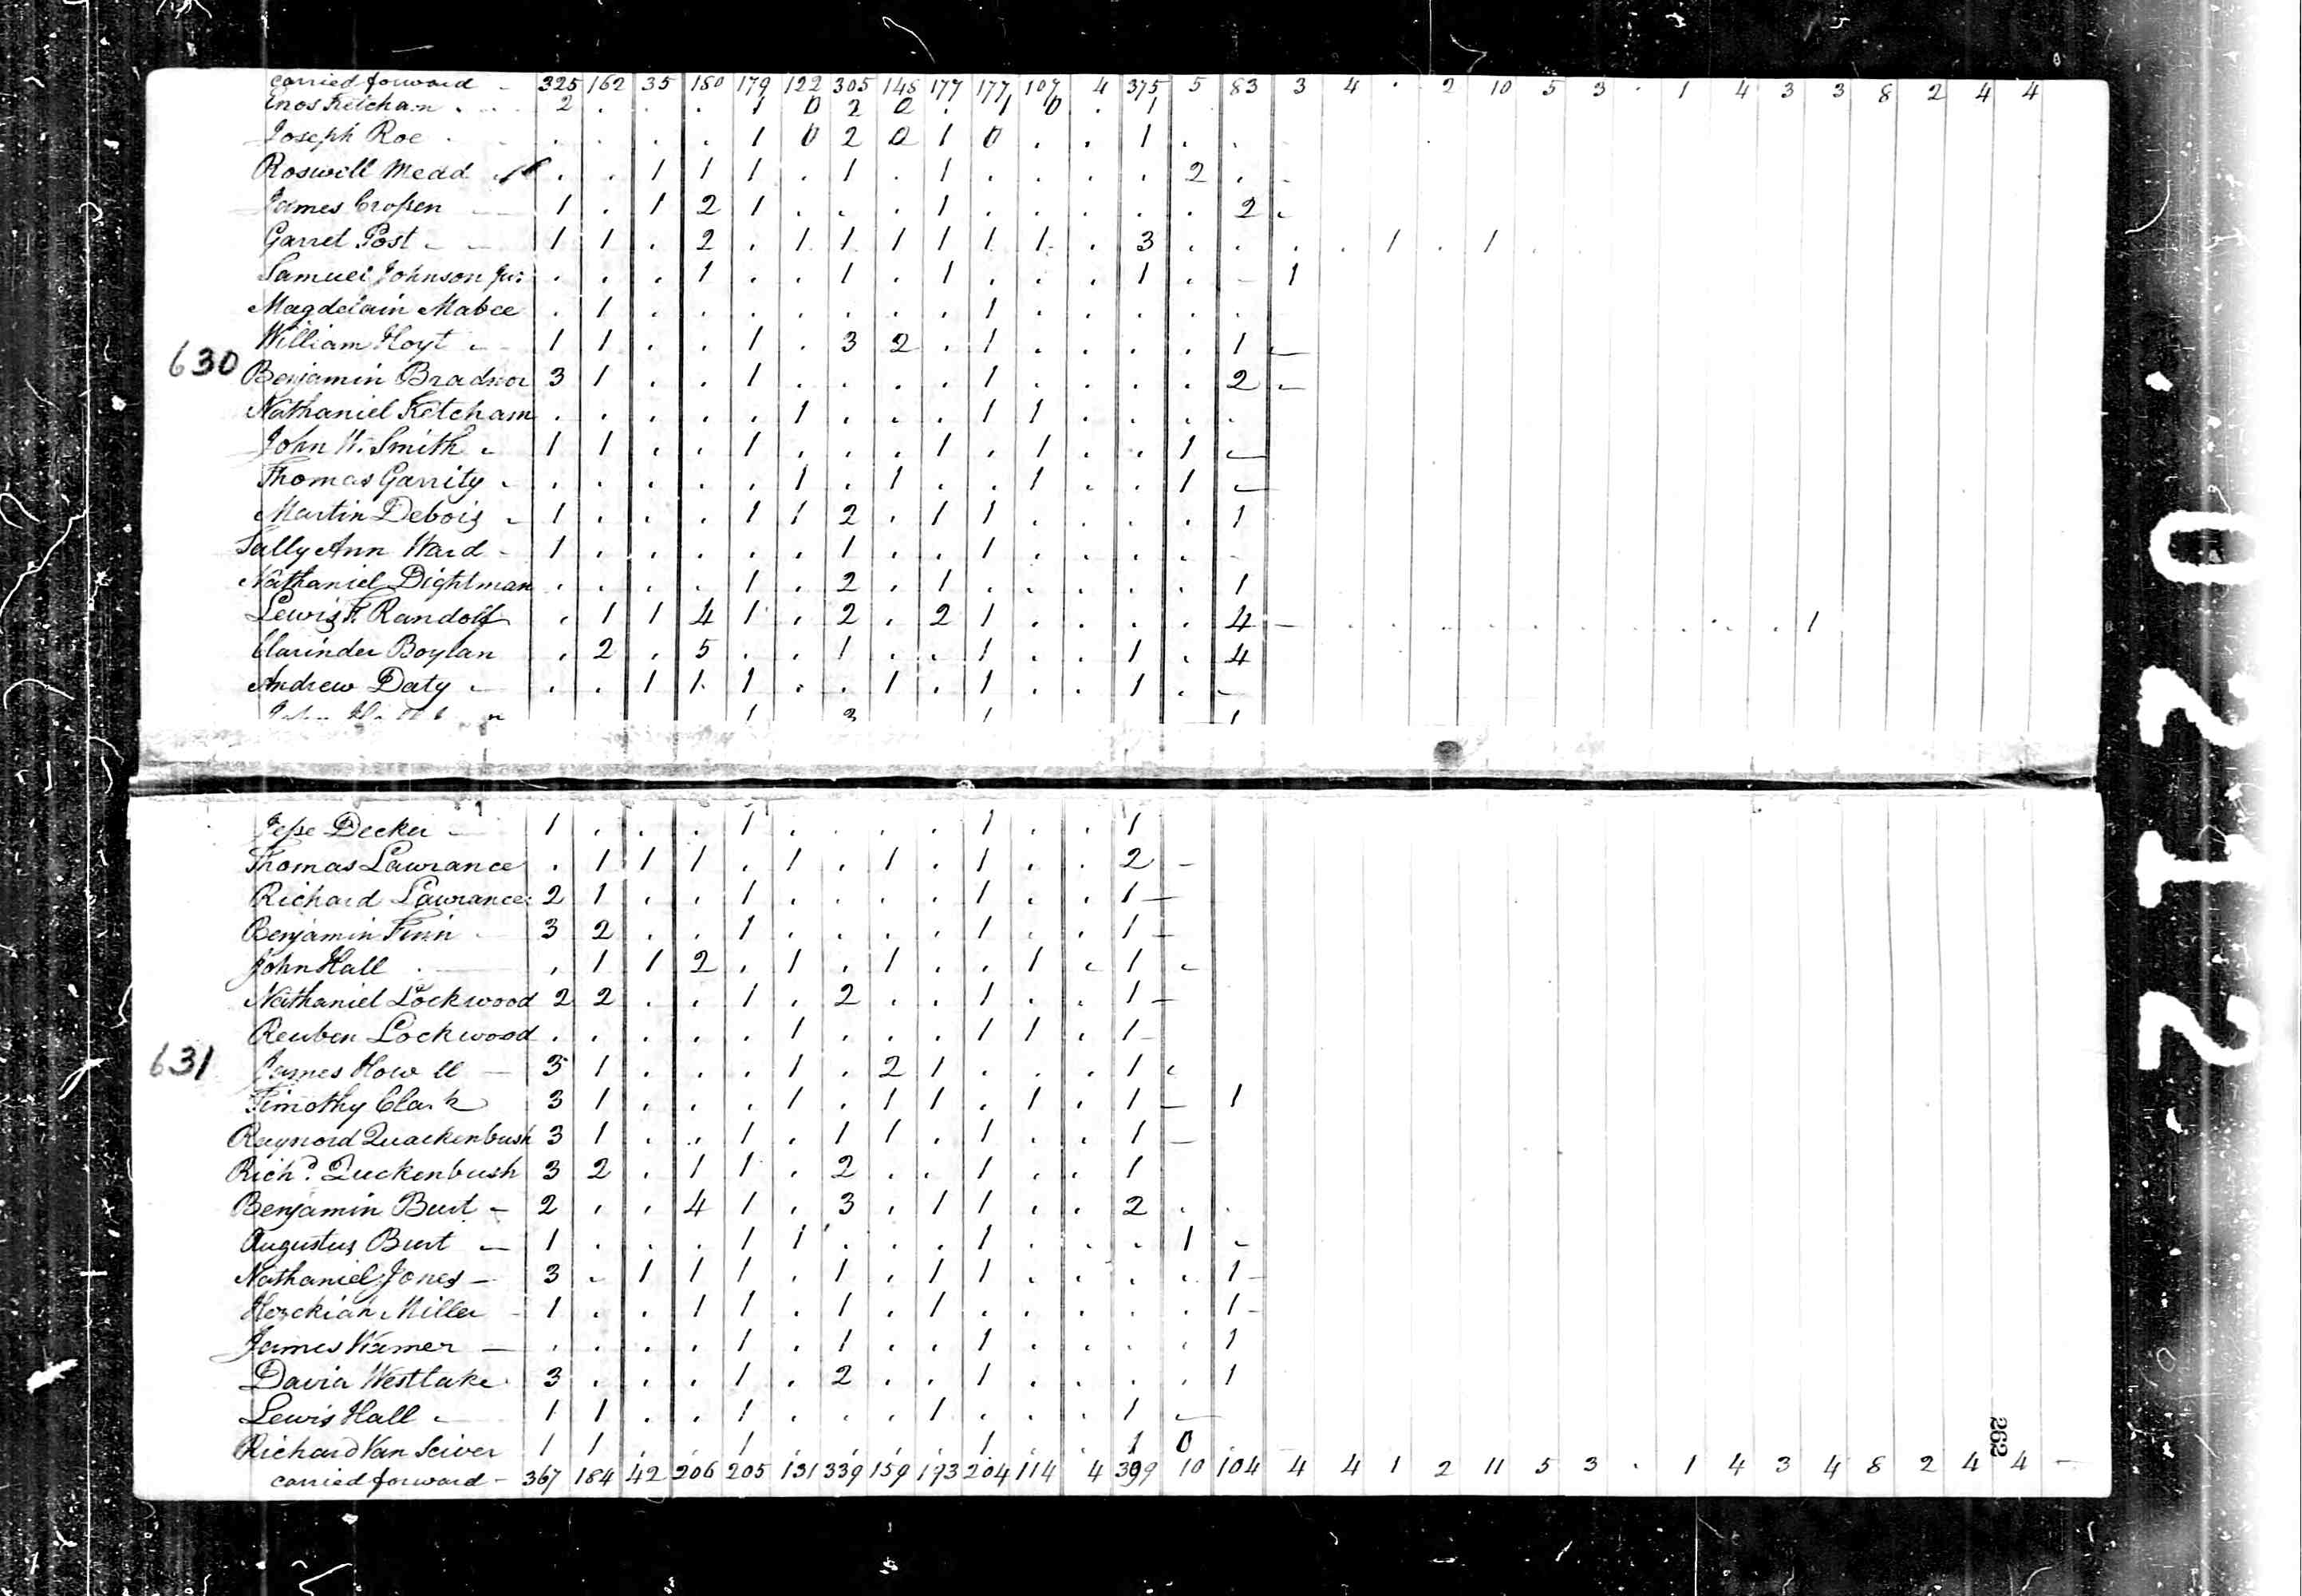 carried forward - 325 162 35 180 179 122 305 148 177 177 107 4 375 5 83 3 4 . 2 10 5 3 . 1 4 3 3 8 2 4 4
Enos Ketcham . . . 2 . . . 1 0 2 0 . 1 0 . 1
Joseph Roe . . . . . 1 0 2 0 1 0 . . 1 . .
Roswill Mead . . 1 1 1 . 1 . 1 . . . . 2 . -
James Croſsen 1 . 1 2 1 . . . 1 . . . . . 2 -
Garret Post - 1 1 . 2 . 1 1 1 1 1 1 . 3 . . . . 1 . 1
Samuel Johnson Jur: . . . 1 . . 1 . 1 . . . 1 . - 1
Magdelain Mabee . 1 . . . . . . . 1 . . . . .
William Hoyt - 1 1 . . 1 . 3 2 . 1 . . . . 1 -
630
Benjamin Bradnor 3 1 . . 1 . . . . 1 . . . . 2 -
Nathaniel Ketcham . . . . . 1 . . . 1 1 . . . .
John W. Smith - 1 1 . . 1 . . . 1 . 1 . . 1 -
Thomas Garrity - . . . . . 1 . 1 . . 1 . . 1 -
Martin Debois - 1 . . . 1 1 2 . 1 1 . . . . 1
Sally Ann Ward - 1 . . . . . 1 . . 1 . . . . -
Nathaniel Dightman . . . . 1 . 2 . 1 . . . . . 1
Lewis F. Randolf . 1 1 4 1 . 2 . 2 1 . . . . 4 - . . . . . . . . . . . 1
Clarinder Boylan . 2 . 5 . . 1 . . 1 . . 1 . 4
Andrew Daty - . . 1 1 1 . . 1 . 1 . . 1 . -
1 3 1 1
Jeſse Decker - 1 . . . 1 . . . . 1 . . 1
Thomas Lawrance . 1 1 1 . 1 . 1 . 1 . . 2 -
Richard Lawrance 2 1 . . 1 . . . . 1 . . 1 -
Benjamin Finn 3 2 . . 1 . . . . 1 . . 1 -
John Hall . . 1 1 2 . 1 . 1 . . 1 . 1 -
Nathaniel Lockwood 2 2 . . 1 . 2 . . 1 . . 1 -
Reuben Lockwood . . . . . 1 . . . 1 1 . 1 -
631
James Howell - 3 1 . . . 1 . 2 1 . . . 1 -
Timothy Clark 3 1 . . . 1 . 1 1 . 1 . 1 - 1
Raynord Quackenbush 3 1 . . 1 . 1 1 . 1 . . 1 -
Richd. Quckenbush 3 2 . 1 1 . 2 . . 1 . . 1
Benjamin Burt - 2 . . 4 1 . 3 . 1 1 . . 2 . .
Augustus Burt - 1 . . . 1 1 . . . 1 . . . 1 -
Nathaniel Jones - 3 . 1 1 1 . 1 . 1 1 . . . . 1 -
Hezekiah Miller - 1 . . 1 1 . 1 . 1 . . . . . 1 -
James Warner - . . . . 1 . 1 . . 1 . . . . 1
David Westlake 3 . . . 1 . 2 . . 1 . . . . 1
Lewis Hall - 1 1 . . 1 . . . 1 . . . 1 -
Richard Van Sciver 1 1 . . 1 . . . . 1 . . 1 0 .
carried forward - 367 184 42 206 205 131 339 159 193 204 114 4 399 10 104 4 4 1 2 11 5 3 . 1 4 3 4 8 2 4 4 -
262
0212